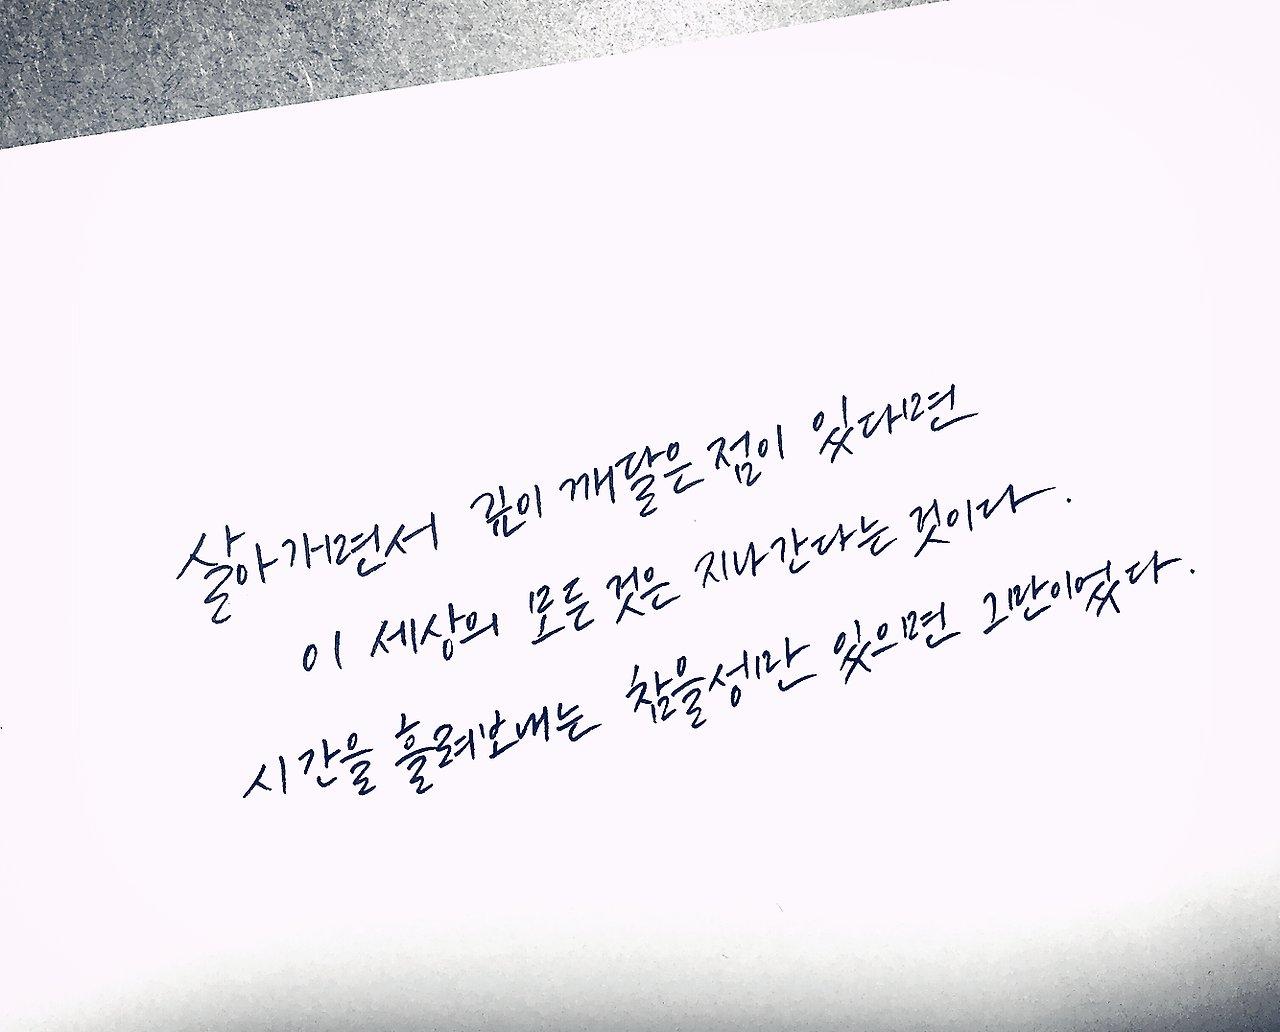 살아가면서 깊이 깨달은 점이 있다면
이 세상의 모든 것은 지나간다는 것이다.
시간을 흘려보내는 참을성만 있으면 그만이었다.